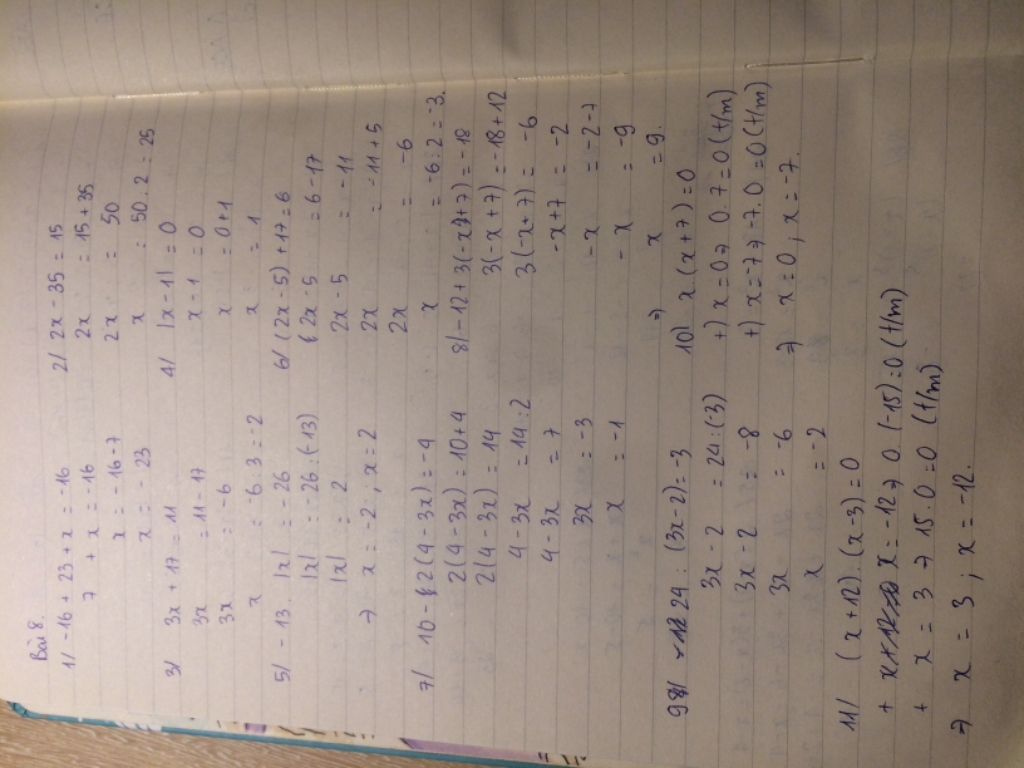 Bài 8.
1/ -16 + 23 + x = -16
7 + x = -16
x = -16-7
x = -23
2/ 2x - 35 = 15
2x = 15 + 35
2x = 50
x = 50 : 2 = 25
3/ 3x + 17 = 11
3x = 11 - 17
3x = -6
x = -6:3 = -2
4/ |x-1| = 0
x - 1 = 0
x = 0+1
x = 1
5/ -13. |x| = -26
|x| = -26:(-13)
|x| = 2
=> x = -2, x = 2
6/ (2x-5) + 17 = 6
2x - 5 = 6 - 17
2x - 5 = -11
2x = -11 + 5
2x = -6
x = -6:2 = -3.
7/ 10 - 2(4-3x) = -4
2(4-3x) = 10+4
2(4-3x) = 14
4-3x = 14:2
4-3x = 7
3x = -3
x = -1
8/ -12 + 3(-x+7) = -18
3(-x+7) = -18+12
3(-x+7) = -6
-x+7 = -2
-x = -2-7
-x = -9
=> x = 9.
9/ 24 : (3x-2) = -3
3x - 2 = 24:(-3)
3x - 2 = -8
3x = -6
x = -2
10/ x(x+7) = 0
+) x = 0 => 0.7 = 0 (t/m)
+) x = -7 => -7.0 = 0 (t/m)
=> x = 0, x = -7.
11/ (x+12).(x-3) = 0
+ x = -12 => 0.(-15) = 0 (t/m)
+ x = 3 => 15.0 = 0 (t/m)
=> x = 3; x = -12.